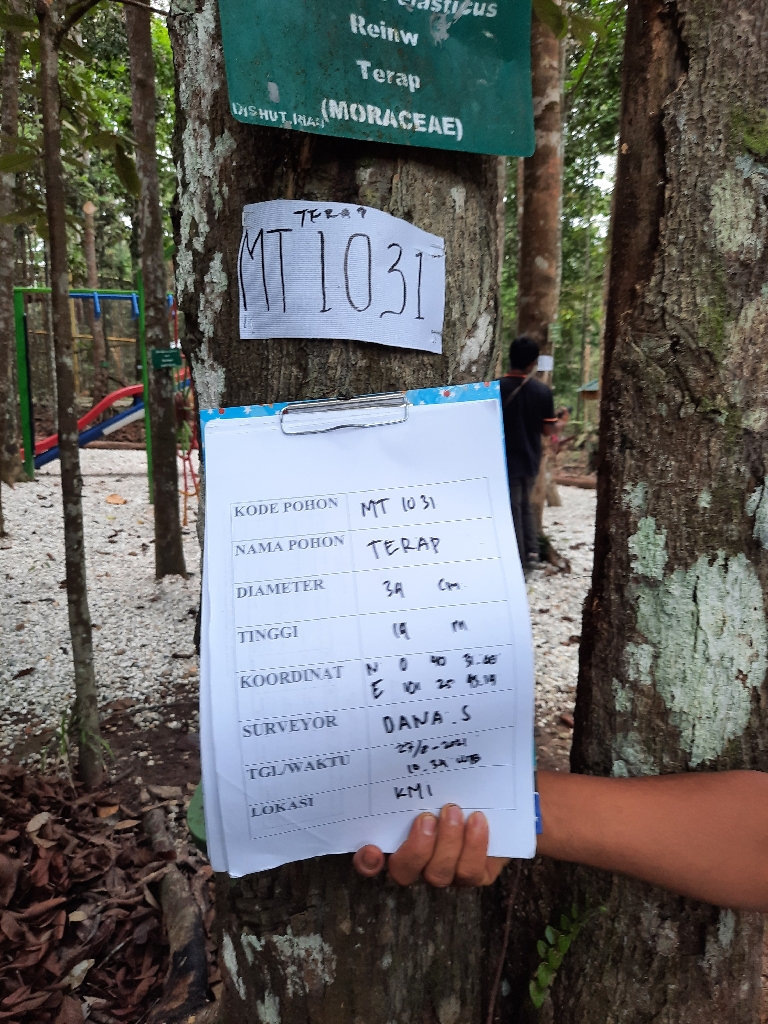 Reinw
Terap
(MORACEAE)
TERAP
MT 1031
KODE POHON MT 1031
NAMA POHON TERAP
DIAMETER 39 cm
TINGGI 19 m
KOORDINAT N 0 40
E 101 25
SURVEYOR DANA.S
TGL/WAKTU 27/8-2021
10.39 WIB
LOKASI KM1